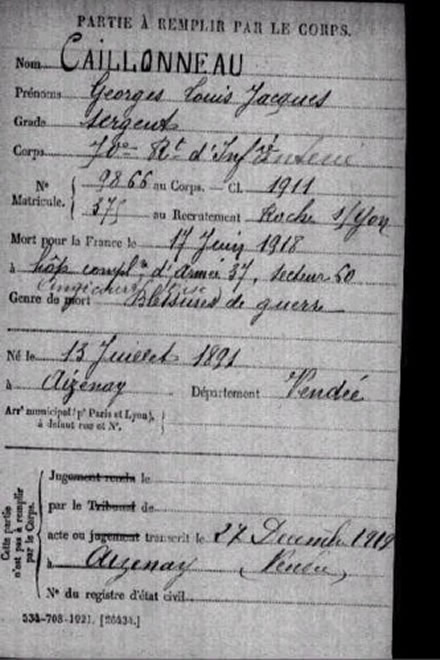 PARTIE À REMPLIR PAR LE CORPS.
Nom CAILLONNEAU
Prénoms Georges Louis Jacques
Grade Sergent
Corps Rt d'Infrie
No 9866 au Corps. — Cl. 1911
Matricule. 375 au Recrutement Roche s/Yon
Mort pour la France le 17 Juin 1918
à hôp. compl. d'armée 37, secteur 60
Genre de mort Blessures de guerre
Né le 13 Juillet 1891
à Aizenay Département Vendée
Arrt municipal (pr Paris et Lyon),
à défaut rue et No.
Cette partie
n'est pas à remplir
par le Corps.
Jugement rendu le
par le Tribunal de
acte ou jugement transcrit le 27 Decembre 1919
à Aizenay (Vendée)
No du registre d'état civil
534-708-1921. [26434.]